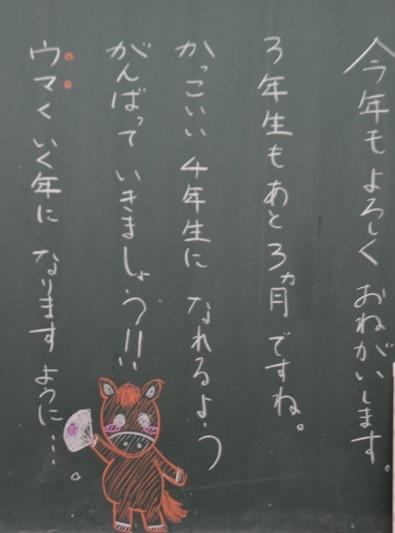 今年もよろしくおねがいします。
3年生もあと3ヵ月ですね。
かっこいい4年生になれるよう
がんばっていきましょう!!!
ウマくいく年になりますように…。